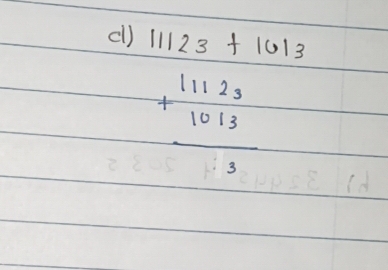 d) 1112₃ + 101₃
1112₃
+ 101₃
₃